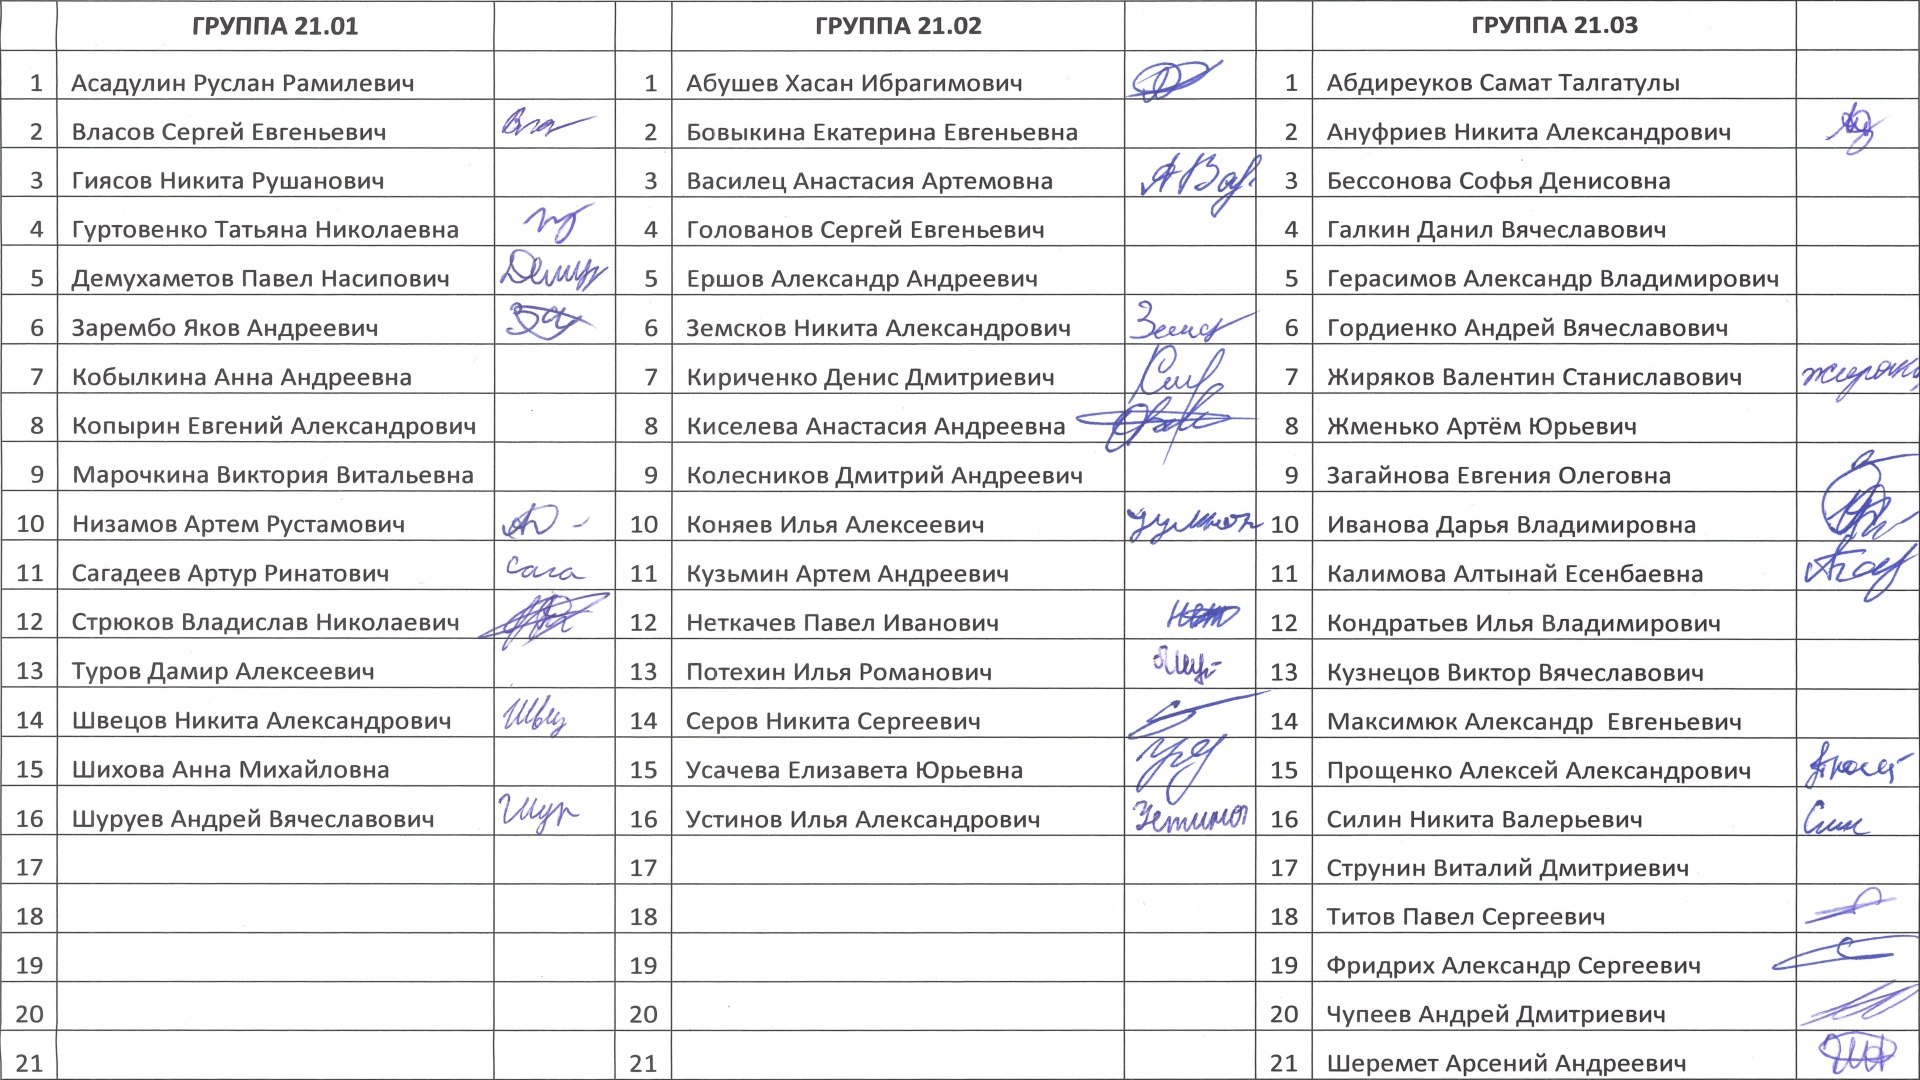 ГРУППА 21.01 ГРУППА 21.02 ГРУППА 21.03
1 Асадулин Руслан Рамилевич 1 Абушев Хасан Ибрагимович 1 Абдиреуков Самат Талгатулы
2 Власов Сергей Евгеньевич 2 Бовыкина Екатерина Евгеньевна 2 Ануфриев Никита Александрович
3 Гиясов Никита Рушанович 3 Василец Анастасия Артемовна 3 Бессонова Софья Денисовна
4 Гуртовенко Татьяна Николаевна 4 Голованов Сергей Евгеньевич 4 Галкин Данил Вячеславович
5 Демухаметов Павел Насипович 5 Ершов Александр Андреевич 5 Герасимов Александр Владимирович
6 Зарембо Яков Андреевич 6 Земсков Никита Александрович 6 Гордиенко Андрей Вячеславович
7 Кобылкина Анна Андреевна 7 Кириченко Денис Дмитриевич 7 Жиряков Валентин Станиславович
8 Копырин Евгений Александрович 8 Киселева Анастасия Андреевна 8 Жменько Артём Юрьевич
9 Марочкина Виктория Витальевна 9 Колесников Дмитрий Андреевич 9 Загайнова Евгения Олеговна
10 Низамов Артем Рустамович 10 Коняев Илья Алексеевич 10 Иванова Дарья Владимировна
11 Сагадеев Артур Ринатович сага 11 Кузьмин Артем Андреевич 11 Калимова Алтынай Есенбаевна
12 Стрюков Владислав Николаевич 12 Неткачев Павел Иванович 12 Кондратьев Илья Владимирович
13 Туров Дамир Алексеевич 13 Потехин Илья Романович 13 Кузнецов Виктор Вячеславович
14 Швецов Никита Александрович 14 Серов Никита Сергеевич 14 Максимюк Александр Евгеньевич
15 Шихова Анна Михайловна 15 Усачева Елизавета Юрьевна 15 Прощенко Алексей Александрович
16 Шуруев Андрей Вячеславович 16 Устинов Илья Александрович 16 Силин Никита Валерьевич
17 17 17 Струнин Виталий Дмитриевич
18 18 18 Титов Павел Сергеевич
19 19 19 Фридрих Александр Сергеевич
20 20 20 Чупеев Андрей Дмитриевич
21 21 21 Шеремет Арсений Андреевич